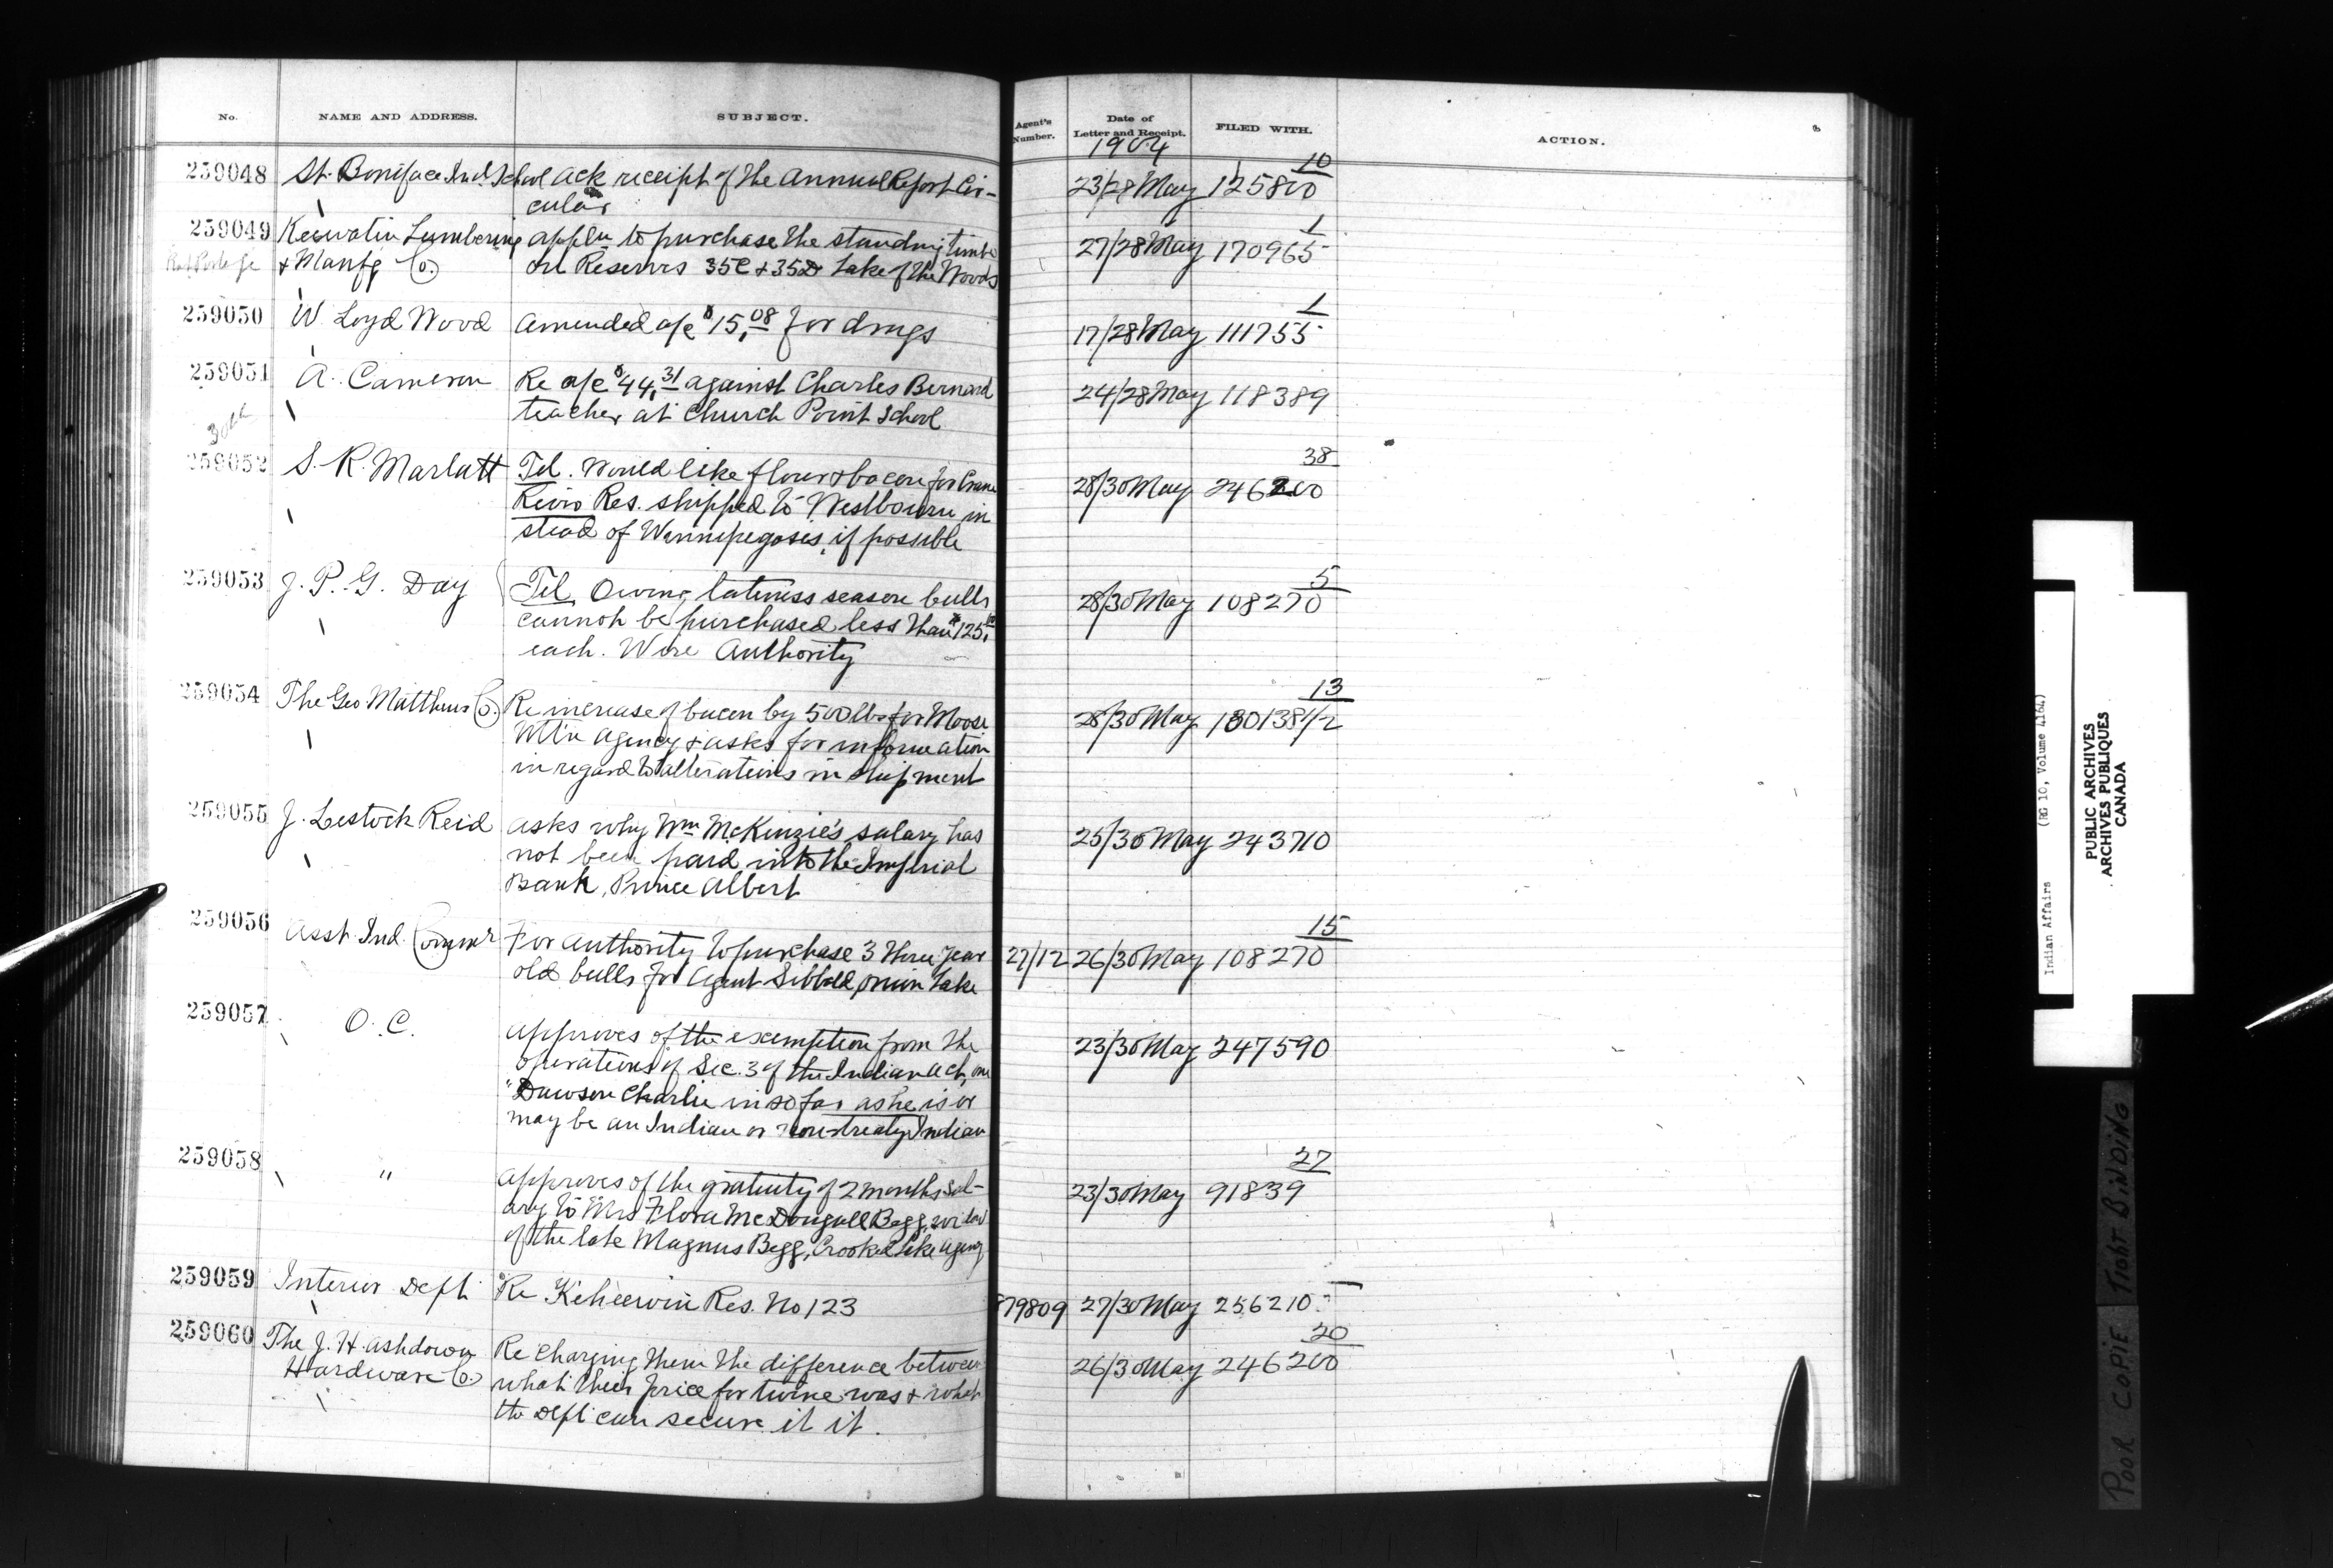 No. NAME AND ADDRESS. SUBJECT. Agent's Number. Date of Letter and Receipt. FILED WITH. ACTION.
1904
10
259048 St. Boniface Ind. School ack receipt of the Annual Report Cir- 23/28 May 125800
cular
1
259049 Keewatin Lumbering appln to purchase the standing timber 27/28 May 170965
Rat Portage & Manfg Co. on Reserves 35C & 35D Lake of the Woods
1
259050 W. Loyd Wood amended a/c $15.08 for drugs 17/28 May 111755
259051 A. Cameron Re a/c $44.31 against Charles Bernard 24/28 May 118389
teacher at Church Point School
38
259052 S. R. Marlatt Tel. Would like flour & bacon for Crane 28/30 May 246200
River Res. shipped to Westbourn in
stead of Winnipegosis, if possible
5
259053 J. P. G. Day Tel Owing lateness season bulls 28/30 May 108270
cannot be purchased less than $125.00
each. Wire Authority
13
259054 The Geo Matthews Co. Re increase of bacon by 500 lbs for Moose 28/30 May 180138 1/2
Mt'n Agency & asks for information
in regard to alterations in shipment
259055 J. Lestock Reid asks why Wm McKinzie's salary has 25/30 May 243710
not been paid into the Imperial
Bank, Prince Albert
15
259056 Asst. Ind. Commr For authority to purchase 3 three year 27/12 26/30 May 108270
old bulls for Agent Sibbald, Onion Lake
259057 O. C. approves of the exemption from the 23/30 May 247590
operations of Sec. 3 of the Indian Act, one
"Dawson Charlie in so far as he is or
may be an Indian or non-treaty Indian
27
259058 " approves of the gratuity of 2 months sal- 23/30 May 91839
ary to Mrs Flora McDougall Begg, widow
of the late Magnus Begg, Crooked Lake Agency
259059 Interior Dept. Re Keheewin Res. No 123 879809 27/30 May 256210
20
259060 The J. H. Ashdown Re charging them the difference between 26/30 May 246200
Hardware Co. what their price for twine was & what
the Dept can secure it it.
Indian Affairs (RG 10, Volume 4164)
PUBLIC ARCHIVES
ARCHIVES PUBLIQUES
CANADA
POOR COPIE TIGHT BINDING